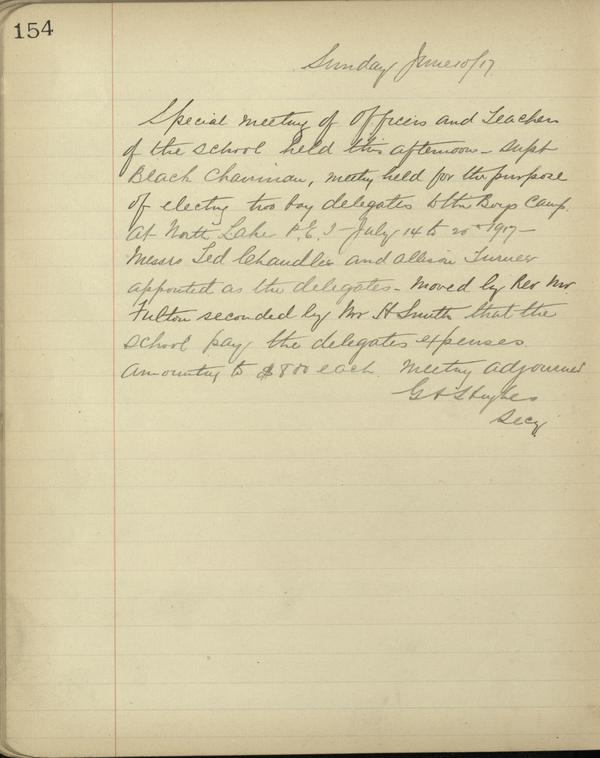 154
Sunday June 10/17
Special meeting of Officers and Teachers
of the school held this afternoon - Supt
Beach Chairman, meeting held for the purpose
of electing two boy delegates to the Boys Camp.
At North Lake P.E.I - July 14 to 20 - 1917 -
Messrs Ted Chandler and Allison Turner
appointed as the delegates - Moved by Rev Mr
Fulton seconded by Mr H Smith that the
school pay the delegates expenses
amounting to $8 00 each. Meeting adjourned
Hughes
Secy